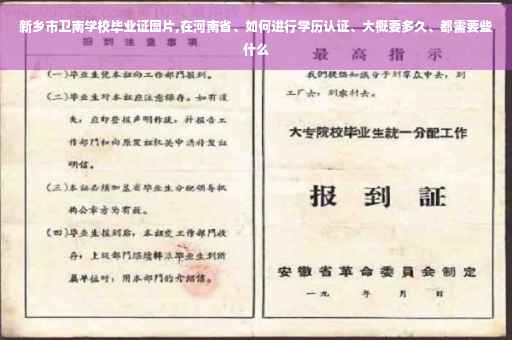 新乡市卫南学校毕业证图片,在河南省、如何进行学历认证、大概要多久、都需要些
什么
报到注意事项
(一)毕业生凭本征向工作部門报到。
(二)毕业生对本征应注意保存。如有遺
失,应即登报声明作废,并报告工
作部門和向原发征机关申請补发征
明信。
(三)本征必須加盖省毕业生分配領导机
构公章方为有效。
(四)毕业生报到后,本征交工作部門收
存;上级部門
属单位时,用本部門的介紹信。
最高指示
我們提倡知識分子到羣众中去,到
工厂去,到农村去。
大专院校毕业生統一分配工作
报到証
安徽省革命委員会制定
一九 年 月 日